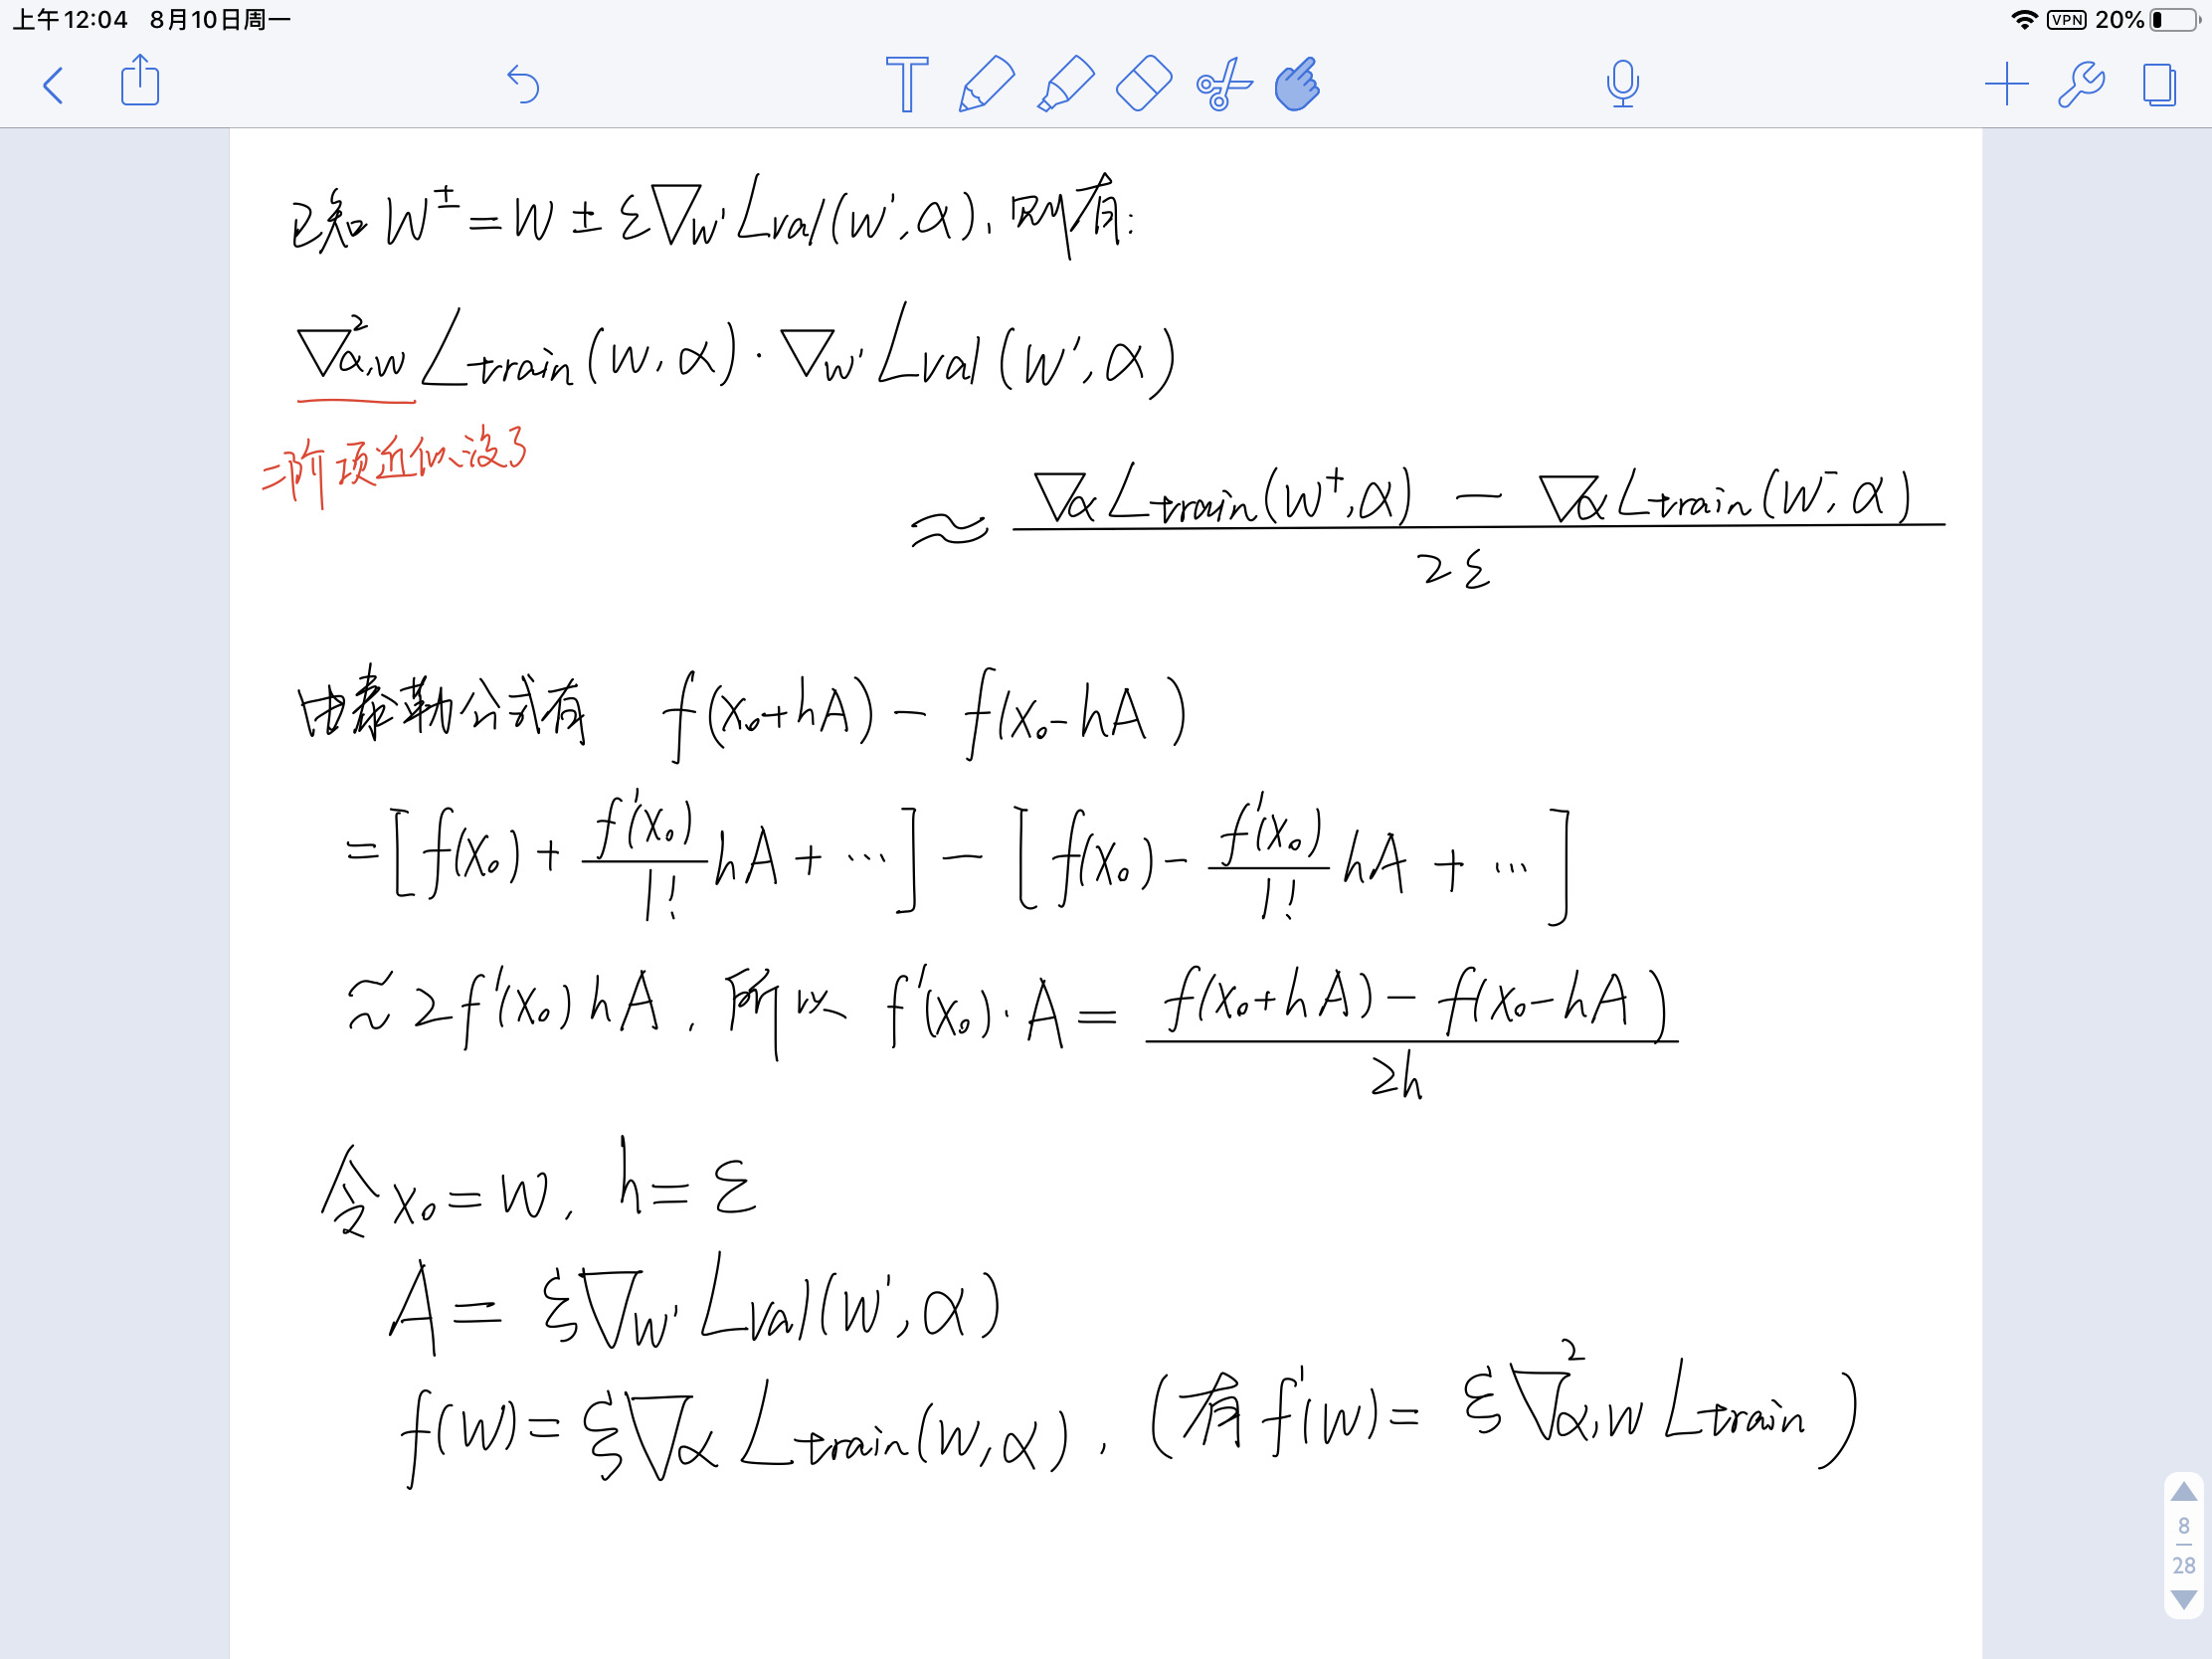 上午12:04 8月10日周一
VPN 20%
已知 W^± = W ± ε∇_{W'} L_{val}(W', α), 则有:
∇²_{α,W} L_{train}(W, α) · ∇_{W'} L_{val}(W', α)
二阶项近似没了
≈ \frac{∇_α L_{train}(W^+, α) − ∇_α L_{train}(W^-, α)}{2ε}
由泰勒公式有 f(x₀+hA) − f(x₀−hA)
= [f(x₀) + \frac{f'(x₀)}{1!} hA + ···] − [f(x₀) − \frac{f'(x₀)}{1!} hA + ···]
≈ 2f'(x₀)hA, 所以 f'(x₀)·A = \frac{f(x₀+hA) − f(x₀−hA)}{2h}
令 x₀ = W, h = ε
A = ξ∇_{W'} L_{val}(W', α)
f(W) = ξ∇_α L_{train}(W, α), (有 f'(W) = ξ∇²_{α,W} L_{train})
8
28